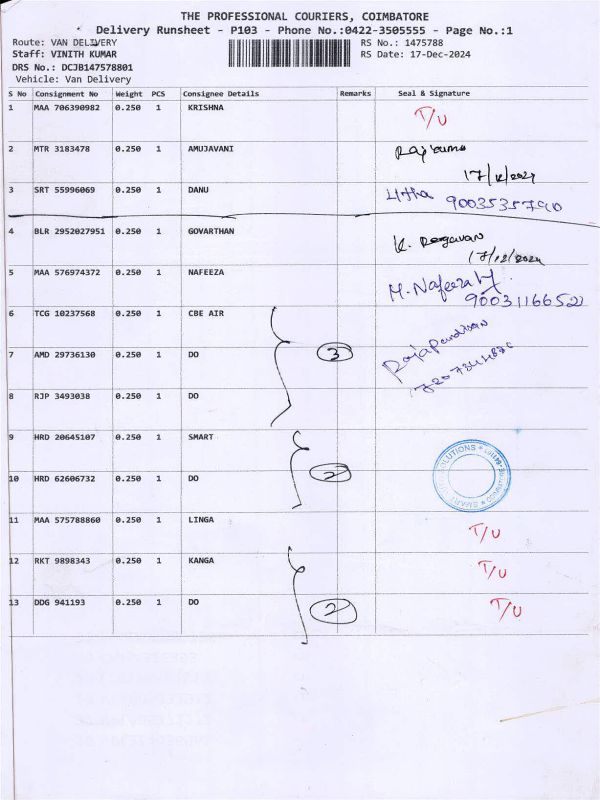 THE PROFESSIONAL COURIERS, COIMBATORE
Delivery Runsheet - P103 - Phone No.:0422-3505555 - Page No.:1
Route: VAN DELIVERY RS No.: 1475788
Staff: VINITH KUMAR RS Date: 17-Dec-2024
DRS No.: DCJB147578801
Vehicle: Van Delivery
S No Consignment No Weight PCS Consignee Details Remarks Seal & Signature
1 MAA 706390982 0.250 1 KRISHNA T/U
2 MTR 3183478 0.250 1 AMUJAVANI
17/12/2024
3 SRT 55996069 0.250 1 DANU 9003535790
4 BLR 2952027951 0.250 1 GOVARTHAN K. Ragavan
17/12/2024
5 MAA 576974372 0.250 1 NAFEEZA M. Nafeeza
9003116652
6 TCG 10237568 0.250 1 CBE AIR
7 AMD 29736130 0.250 1 DO 3 Raja Pandian
8 RJP 3493038 0.250 1 DO
9 HRD 20645107 0.250 1 SMART
10 HRD 62606732 0.250 1 DO 2 SMART SOLUTIONS
11 MAA 575788860 0.250 1 LINGA T/U
12 RKT 9898343 0.250 1 KANGA T/U
13 DDG 941193 0.250 1 DO 2 T/U